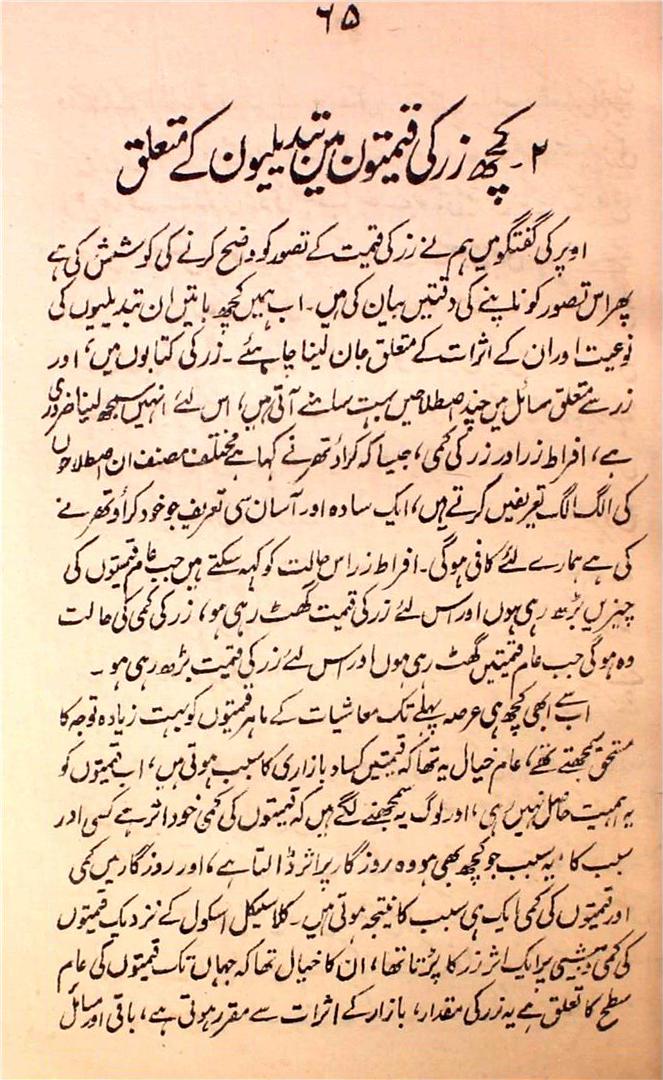 ۶۵
۲۔ کچھ زر کی قیمتون مین تبدیلیون کے متعلق
اوپر کی گفتگو میں ہم نے زر کی قیمت کے تصور کو واضح کرنے کی کوشش کی ہے
پھر اس تصور کو ناپنے کی دقتیں بیان کی ہیں۔ اب ہمیں کچھ باتیں ان تبدیلیوں کی
نوعیت اور ان کے اثرات کے متعلق جان لینا چاہئے ۔ زر کی کتابوں میں، اور
زر سے متعلق مسائل میں چند اصطلاحیں بہت سامنے آتی ہیں، اس لئے انہیں سمجھ لینا ضروری
ہے، افراط زر اور زر کی کمی، جیسا کہ کراؤتھر نے کہا ہے مختلف مصنف ان اصطلاحوں
کی الگ الگ تعریفیں کرتے ہیں، ایک سادہ اور آسان سی تعریف جو خود کراؤتھر نے
کی ہے ہمارے لئے کافی ہوگی۔ افراط زر اس حالت کو کہہ سکتے ہیں جب عام قیمتوں کی
چیزیں بڑھ رہی ہوں اور اس لئے زر کی قیمت گھٹ رہی ہو، زر کی کمی کی حالت
وہ ہوگی جب عام قیمتیں گھٹ رہی ہوں اور اس لئے زر کی قیمت بڑھ رہی ہو ۔
اب سے ابھی کچھ ہی عرصہ پہلے تک معاشیات کے ماہر قیمتوں کو بہت زیادہ توجہ کا
مستحق سمجھتے تھے، عام خیال یہ تھا کہ قیمتیں کساد بازاری کا سبب ہوتی ہیں، اب قیمتوں کو
یہ اہمیت حاصل نہیں رہی، اور لوگ یہ سمجھنے لگے ہیں کہ قیمتوں کی کمی خود اثر ہے کسی اور
سبب کا، یہ سبب جو کچھ بھی ہو وہ روزگار پر اثر ڈالتا ہے، اور روزگار میں کمی
اور قیمتوں کی کمی ایک ہی سبب کا نتیجہ ہوتی ہیں۔ کلاسیکل اسکول کے نزدیک قیمتوں
کی کمی و بیشی پر ایک اثر زر کا پڑتا تھا، ان کا خیال تھا کہ جہاں تک قیمتوں کی عام
سطح کا تعلق ہے یہ زر کی مقدار، بازار کے اثرات سے مقرر ہوتی ہے، باقی اور مسائل